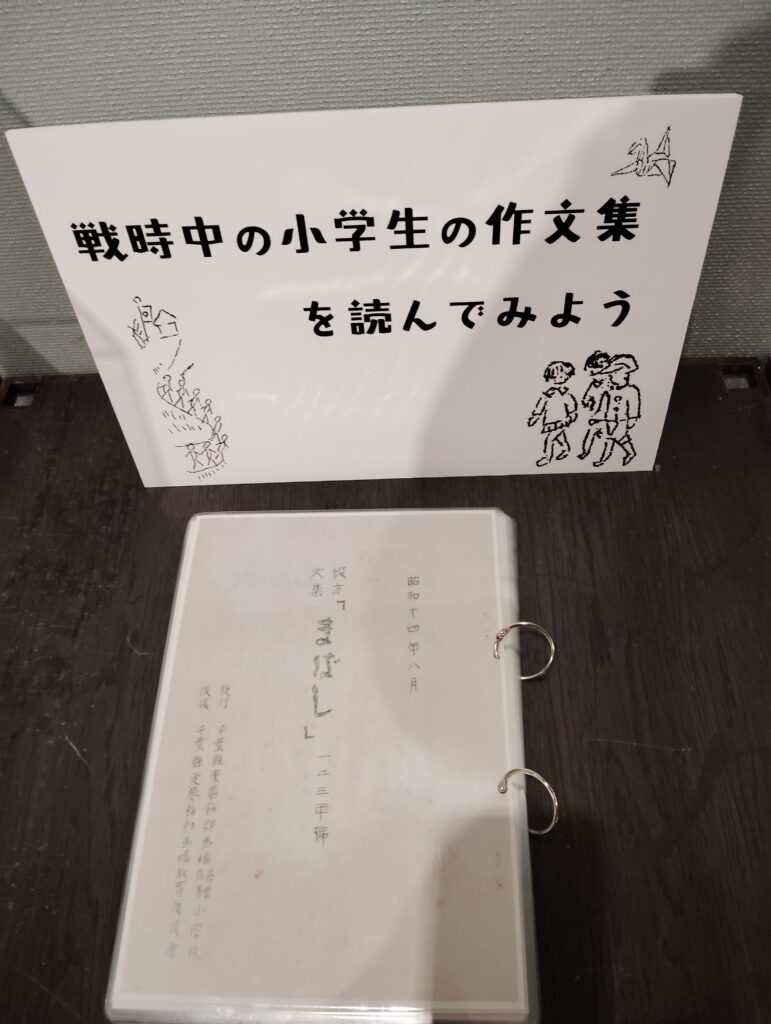 戦時中の小学生の作文集
を読んでみよう
昭和十四年八月
綴方
文集
「まばし」一二三年號
發行 千葉縣東葛飾郡馬橋尋常小學校
後援 千葉縣東葛飾郡馬橋教育後援會